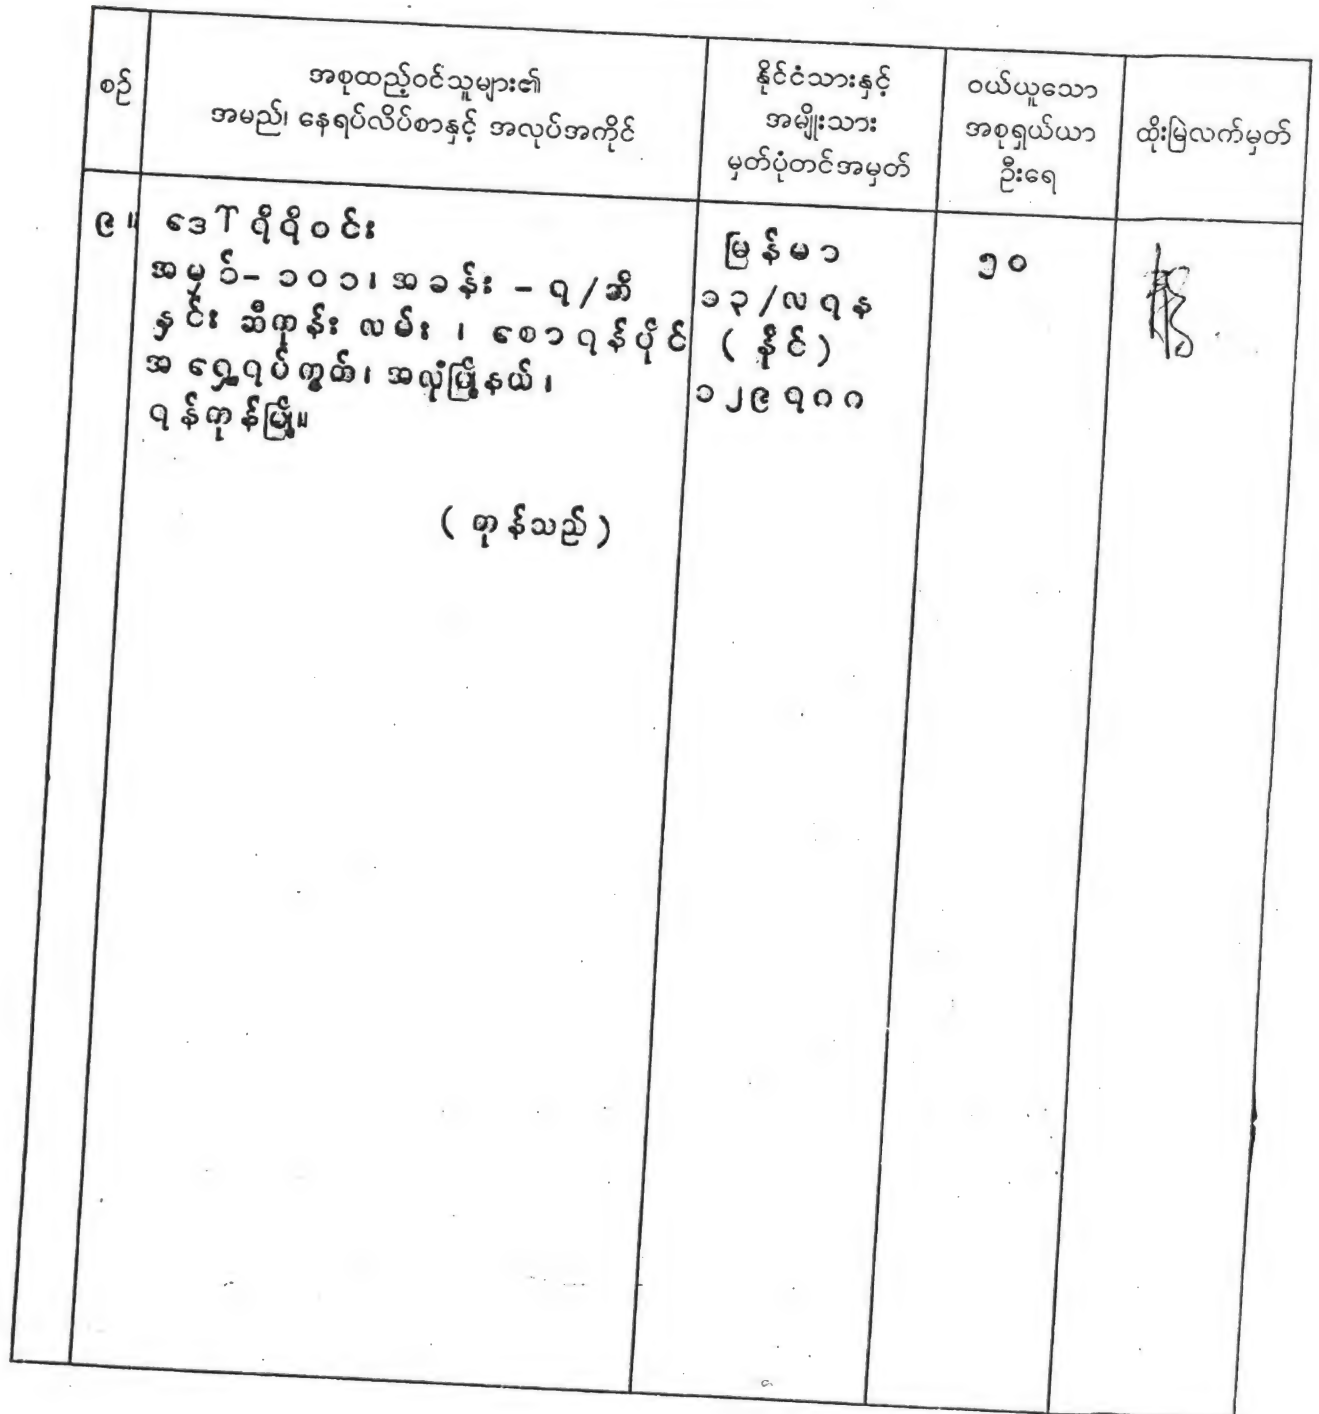 စဉ်
အစုထည့်ဝင်သူများ၏
အမည်၊ နေရပ်လိပ်စာနှင့် အလုပ်အကိုင်
နိုင်ငံသားနှင့်
အမျိုးသား
မှတ်ပုံတင်အမှတ်
ဝယ်ယူသော
အစုရှယ်ယာ
ဦးရေ
ထိုးမြဲလက်မှတ်
၉။
ဒေါ်ရီရီဝင်း
အမှတ်-၁၀၁၊ အခန်း - ၇/အေ
နှင်းဆီကုန်းလမ်း ၊ စောရန်ပိုင်
အရှေ့ရပ်ကွက်၊ အလုံမြို့နယ်၊
ရန်ကုန်မြို့။
(ကုန်သည်)
မြန်မာ
၁၃/လရန
(နိုင်)
၁၂၉၇၈၈
၅၀